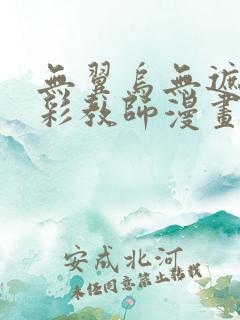 無翼鳥無遮
彩教師漫畫
安成北河
未经同意禁止转载